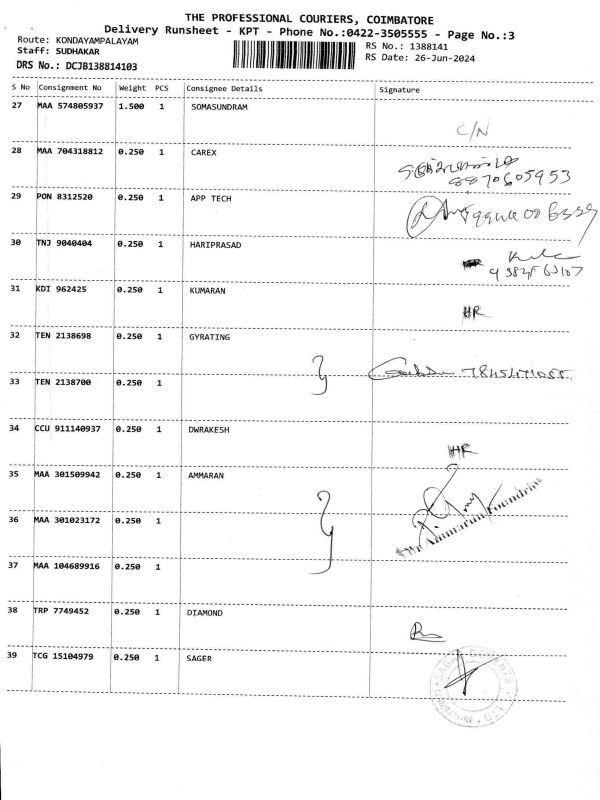 THE PROFESSIONAL COURIERS, COIMBATORE
Delivery Runsheet - KPT - Phone No.:0422-3505555 - Page No.:3
Route: KONDAYAMPALAYAM
RS No.: 1388141
Staff: SUDHAKAR
RS Date: 26-Jun-2024
DRS No.: DCJB138814103
S No Consignment No Weight PCS Consignee Details Signature
27 MAA 574805937 1.500 1 SOMASUNDRAM
C/N
28 MAA 704318812 0.250 1 CAREX
8870605953
29 PON 8312520 0.250 1 APP TECH
30 TNJ 9040404 0.250 1 HARIPRASAD
31 KDI 962425 0.250 1 KUMARAN
HR
32 TEN 2138698 0.250 1 GYRATING
33 TEN 2138700 0.250 1
34 CCU 911140937 0.250 1 DWRAKESH
HR
35 MAA 301509942 0.250 1 AMMARAN
36 MAA 301023172 0.250 1
37 MAA 104689916 0.250 1
38 TRP 7749452 0.250 1 DIAMOND
39 TCG 15104979 0.250 1 SAGER